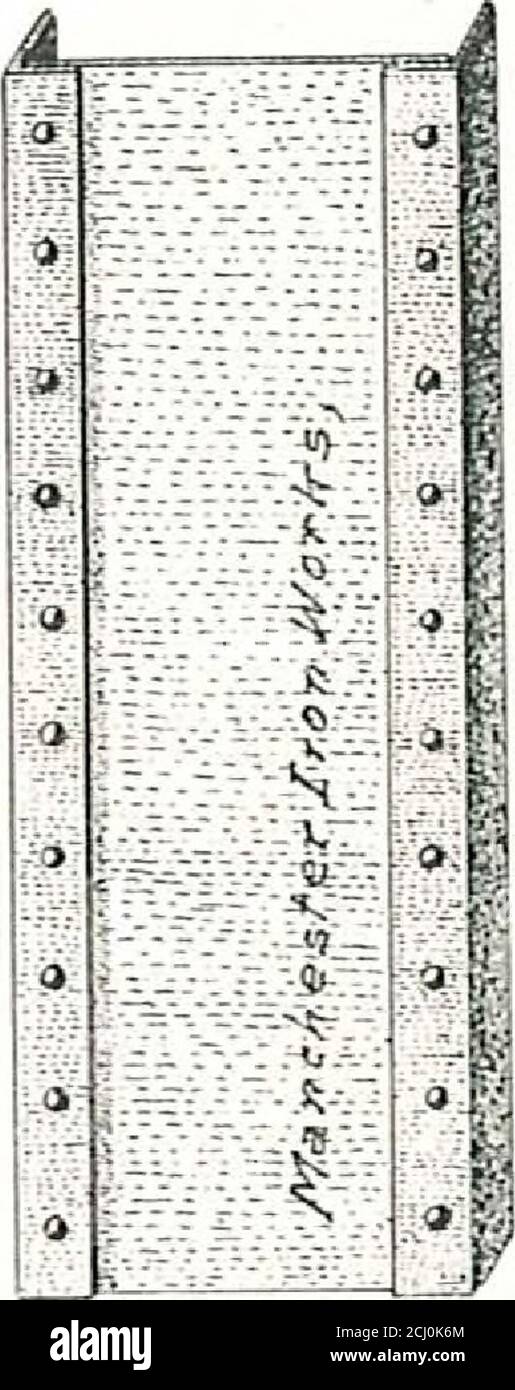 Manchester Iron Works,
alamy
2CJ0K6M
www.alamy.com